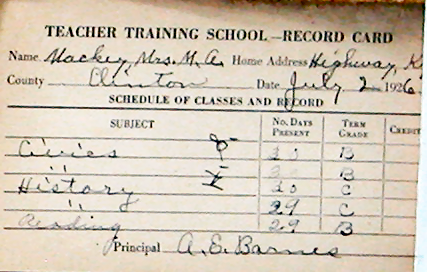 TEACHER TRAINING SCHOOL—RECORD CARD
Name Mackey, Mrs. M. A. Home Address Highway, K
County Clinton Date July 2 1926
SCHEDULE OF CLASSES AND RECORD
SUBJECT No. DAYS PRESENT TERM GRADE CREDIT
Civics B
" B
History C
" 29 C
Reading 29 B
Principal A. E. Barnes